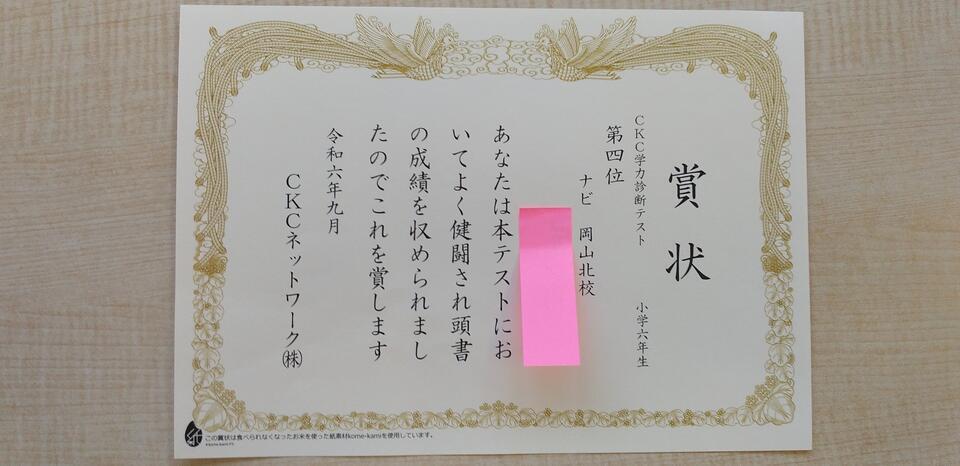 賞状
CKC学力診断テスト 小学六年生
第四位
ナビ 岡山北校
あなたは本テストにお
いてよく健闘され頭書
の成績を収められまし
たのでこれを賞します
令和六年九月
CKCネットワーク㈱
紙
この賞状は食べられなくなったお米を使った紙素材kome-kamiを使用しています。